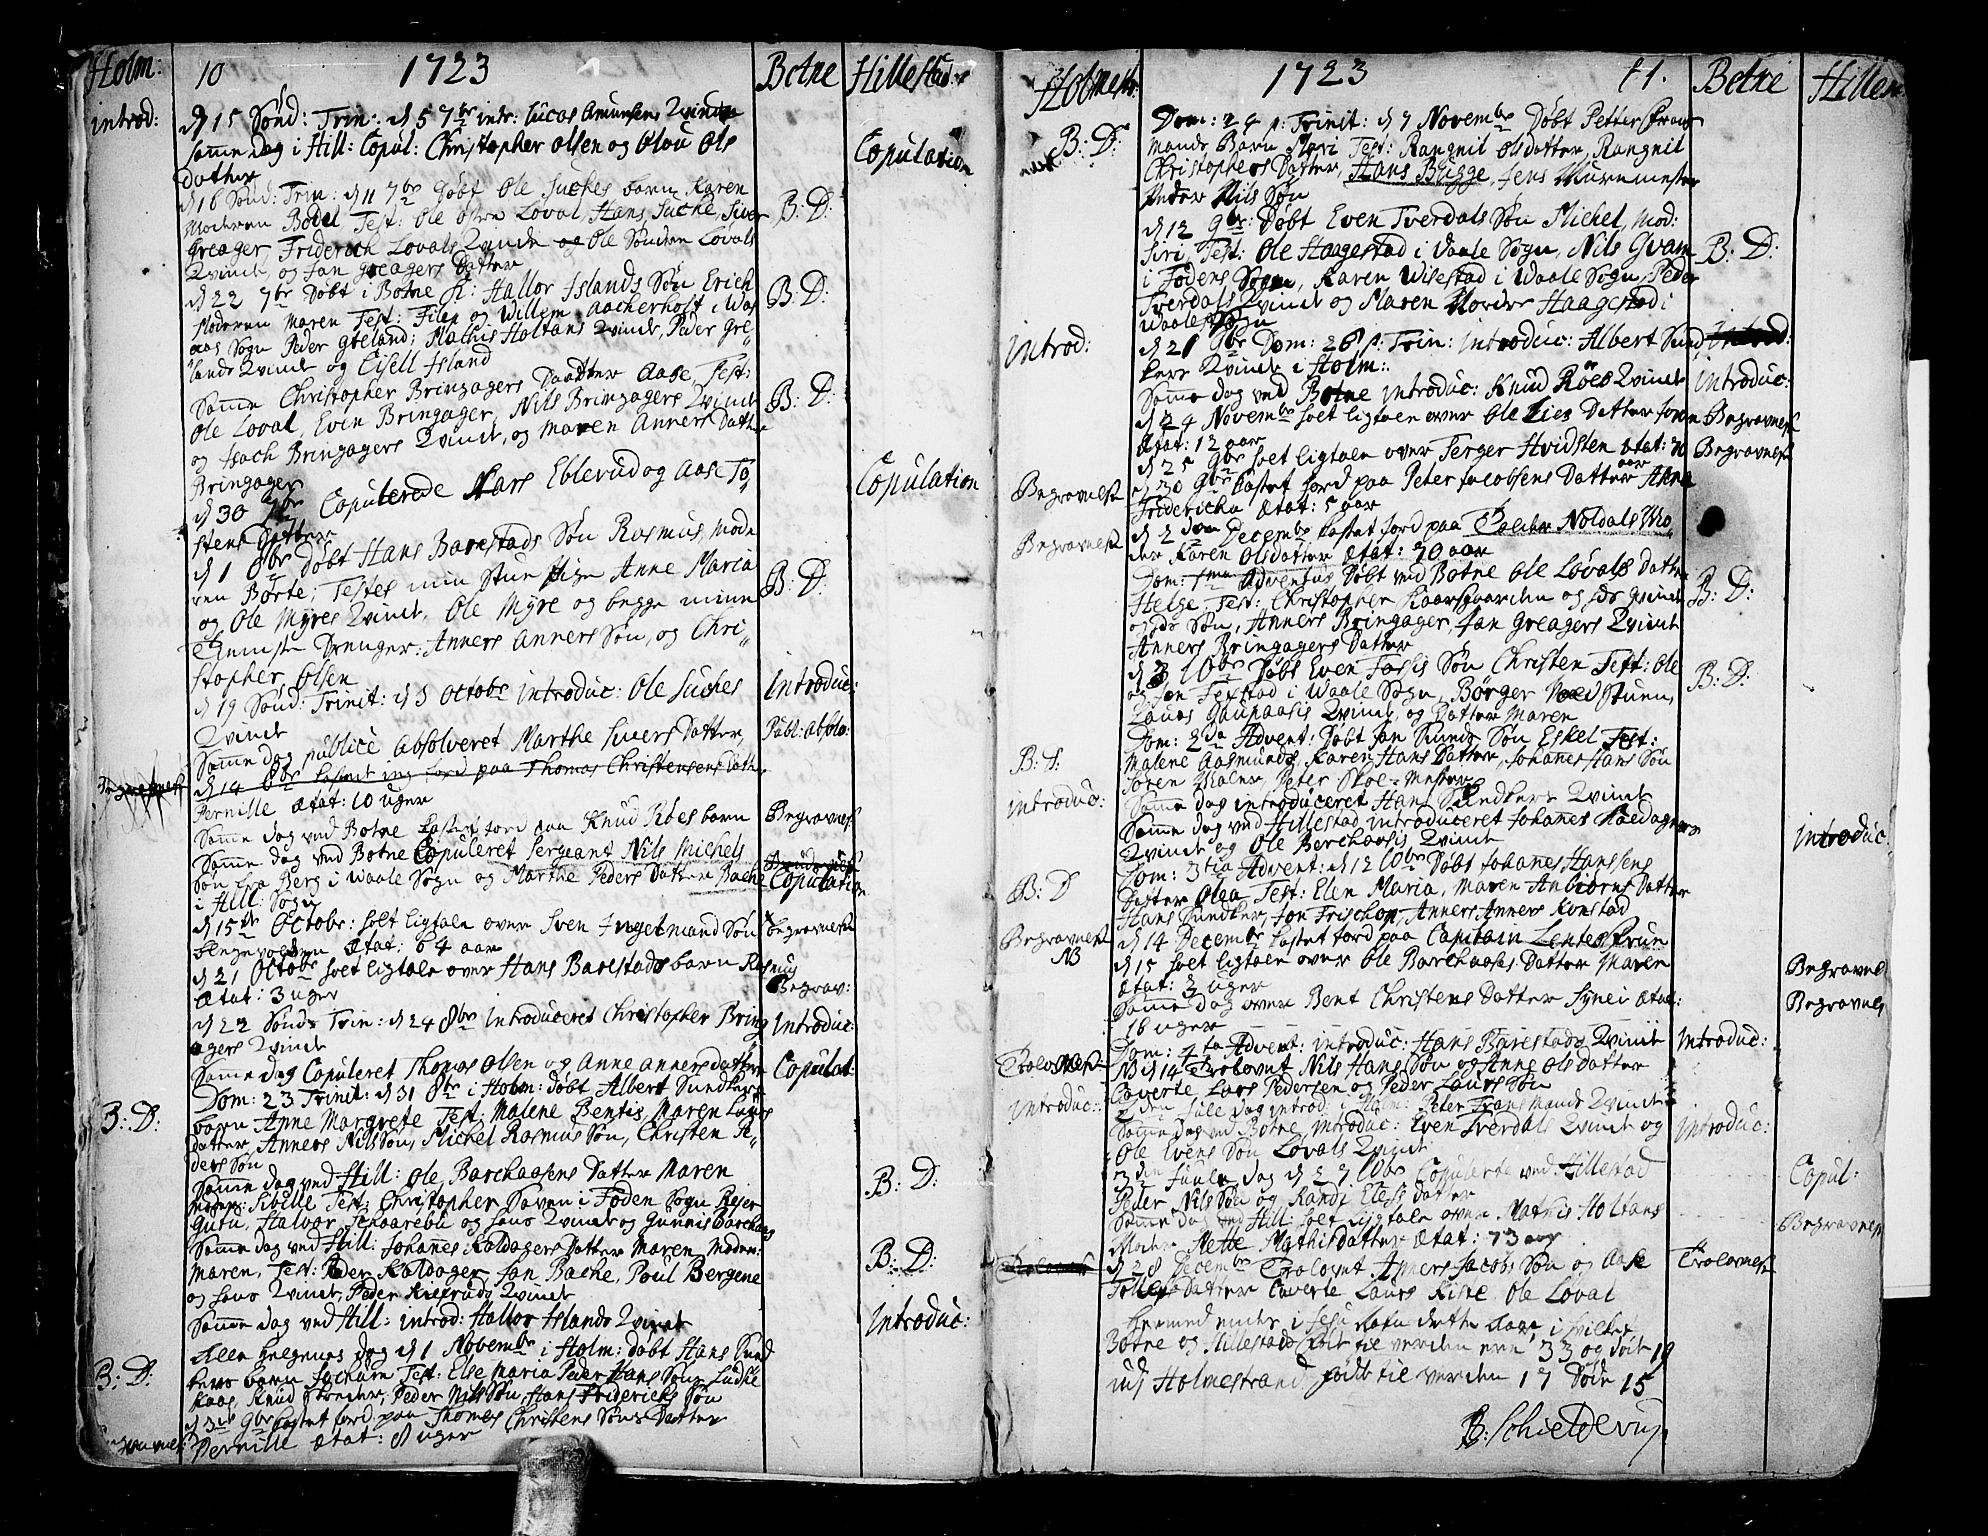 Holm:
10
1723
Botne
Hillestad:
introd:
d 15 Sønd: Trin: d 5 7br intr: Lucas Amunsens Qvinde
Samme dag i Hill: Copul: Christopher Olsen og Olou Ols
Copulation
datter
d 16 Sønd: Trin: d 11 7br Døbt Ole Suches barn Karen
Moderen Bodel Test: Ole Løval, Hans Suche, Siver
B: D:
Greager, Friderich Lovals Qvinde og Ole Søndre Løvals
Qvinde, og Jan Greagers Datter
d 22 7br Døbt i Botne K: Hallor Islands Søn Erich
B: D:
Moderen Maren Test: Filep og Willem Aacherholt i Waa
aas Sogn Peder Grøland; Mathis Holtans Qvinde, Peder Grø
lands Qvinde og Eisell Island
Samme Christopher Bringagers Daatter Aase Test:
B: D:
Ole Loval, Even Bringager, Nils Bringagers Qvinde
og Isach Bringagers Qvinde, og Maren Anners Datter
Bringager
d 30 7br Copulerede Lars Eblerud og Aase To
Copulation
stens Datter
d 1 8br Døbt Hans Barestads Søn Rasmus, Mode
ren Børte; Testes min Stue Pige Anne Maria
B: D:
og Ole Myres Qvinde, Ole Myre og begge mine
Tienniste Drenger: Anners Anners Søn, og Chri
stopher Olsen
d 19 Sønd: Trinit: d 3 Octobr Introduc: Ole Suches
Introduc:
Qvinde
Samme dag publice absolveret Marthe Sivers Datter
Publ: absolv:
d 14 8br kastet ieg Jord paa Thomas Christensens Datter
Pernille Ætat: 10 uger
Samme dag ved Botne kastet Jord paa Knud Røes barn
Begravels
Samme dag ved Botne Copuleret Sergeant Nils Michels
Søn fra Berg i Waale Sogn og Marthe Peders Datter Bache
Copulation
i Hill: Sogn
d 15de Octobr: holt ligtale over Sven Ingelmand Søn
Begravelse
Ætat: 64 aar
d 21 Octobr holt ligtale over Hans Barestads barn Rasmus
Begrav:
Ætat: 3 uger
d 22 Sønd: Trin: d 24 8br Introduceret Christopher Bring
Introduc:
agers Qvinde
Samme dag Copuleret Thomas Olsen og Anne Annersdatter
Copulat:
Dom: 23 Trinit: d 31 8br i Holm: døbt Albert Sundkers
B: D:
barn Anne Margrete Test: Malene Bentis, Maren Laurs
datter, Anners Nilssøn, Michel Rasmus Søn, Christen Pe
ders Søn
Samme dag ved Hill: Ole Barchaasens Datter Maren
B: D:
Moder: Sibille Test: Christopher Søven i Foden Sogn Rejer
Gutu, Halvor Schaarebu og hans Qvinde og Gunnis Barchaas
Samme dag ved Hill: Johannes Koldagers Datter Maren, Moder:
B: D:
Maren, Test: Peder Koldager, Jan Bache, Poul Bergene
og hans Qvinde, Peder Qvinde
Samme dag ved Hill: introd: Hallor Islands Qvinde
Introduc:
Alle helgenes dag d 1 Novembr i Holm: døbt Hans Sund
B: D:
kers barn Jochum Test: Else Maria Peder Hans Søns Ludste
Kaas, Knud Skreder, Peder Nils Søn, Hans Friderichs Søn
d 3 9br kastet Jord paa Thomas Christens Søns Datter
Pernille Ætat: 8 uger
Holmestr:
1723
11.
Botne
Hillest
Dom: 24 p: Trinit: d 7 Novembr Døbt Petter Frans
B: D:
mands Barn Mari Test: Rangnil Olsdatter, Rangnil
Christophers Datter, Hans Bügge, Jens Muremester
Peder Nils Søn
d 12 9br: Døbt Even Tverdals Søn Michel, Mod:
Siri, Test: Ole Haagestad i Vaale Sogn, Nils Gvam
B: D:
i Fodens Sogn, Karen Wilestad i Waale Sogn, Peder
Tverdals Qvinde og Maren Nordre Haagestad i
Waale Sogn
d 21 9br Dom: 26 p: Trin: Introduc: Albert Sund
Introd:
kers Qvinde i Holm:
Samme dag ved Botne introduc: Knud Røes Qvinde
Introduc:
d 24 Novembr holt ligtale over Ole Lies Datter
Begravelse
Ætat: 12 aar
d 25 9br holt ligtale over Terger Hvidsten Ætat: 70
Begravelse
aar
d 30 9br kastet Jord paa Peter Jacobsens Datter Anna
Begravelse
Fridericha Ætat: 5 aar
d 2den Decembr kastet Jord paa Noldals Mo
Begravelse
der Karen Olsdatter Ætat: 70 aar
Dom: 1ma Adventus Døbt ved Botne Ole Løvals Datter
B: D:
Helge Test: Christopher Kaarsgaarden og hs Qvinde
og hs Søn, Anners Bringager, Jan Greagers Qvinde
Anners Bringagers Datter
d 3 10br Døbt Even Fossis Søn Christen Test: Ole
B: D:
og Jon Fexstad i Waale Sogn, Børger Nedstuen,
Laurs Gaupaasis Qvinde, og Datter Maren
Dom: 2da Advent: Døbt Jan Runds Søn Eskel Test:
B: D:
Malene Aasmunds, Karen Hans Datter, Johanes Hans Søn
Søren Walør, Peter Skoe-mester
Samme dag introduceret Hans Sundkers Qvinde
introduc:
Samme dag ved Hillestad introduceret Johanes Koldagers
introduc:
Qvinde og Ole Berchaasis Qvinde
Dom: 3tia Advent: d 12 10br Døbt Johanes Hanssens
B: D
Datter Olea, Test: Elen Maria, Maren Anbiørns Datter
Hans Sundker, Jon Frischop, Anners Anners Konstad
d 14 Decembr kastet Jord paa Capitain Lentes Frue
Begravelse
NB
d 15 holt ligtale over Ole Barchaases Datter Maren
Begravels
Ætat: 3 uger
Samme dag over Bent Christens Datter Synei Ætat:
Begravels
16 uger
Dom: 4ta Advent: introduc: Hans Barestads Qvinde
Introduc:
NB d 14 Trolovet Nils Hans Søn og Anne Ols datter
Trolovelse
Caverte Lars Pedersen og Peder Laurs Søn
2den Jule dag introd: i Holm: Peter Fransmands Qvinde
Introduc:
Samme dag ved Botne, Introduc: Even Tverdals Qvinde og
Introduc:
Ole Evens Søn Løvals Qvinde
3die Juule dag d 27 10br Copulerte ved Hillestad
Copul:
Peder Nils Søn og Randi Elefs datter
Samme dag ved Hill: holt ligtale over Mathis Holtans
Begravelse
Moder Mette Mathisdatter Ætat: 73 aar
d 28 Decembr Trolovet Anners Jacobs Søn og Aase
Trolovelse
Tollefs Datter Caverte Laurs Kiste Ole Løval
Hermed endes i Jesu Nafn dette Aar, i hvilket
Botne og Hillestad født til verden ere 33 og døde 19
udj Holmestrand født til verden 17 døde 15
B: Schielderup.